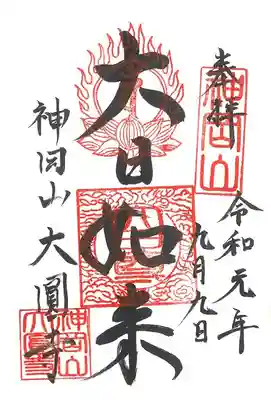 奉拝
神岡山
令和元年
九月九日
大日如来
神岡山大圓寺